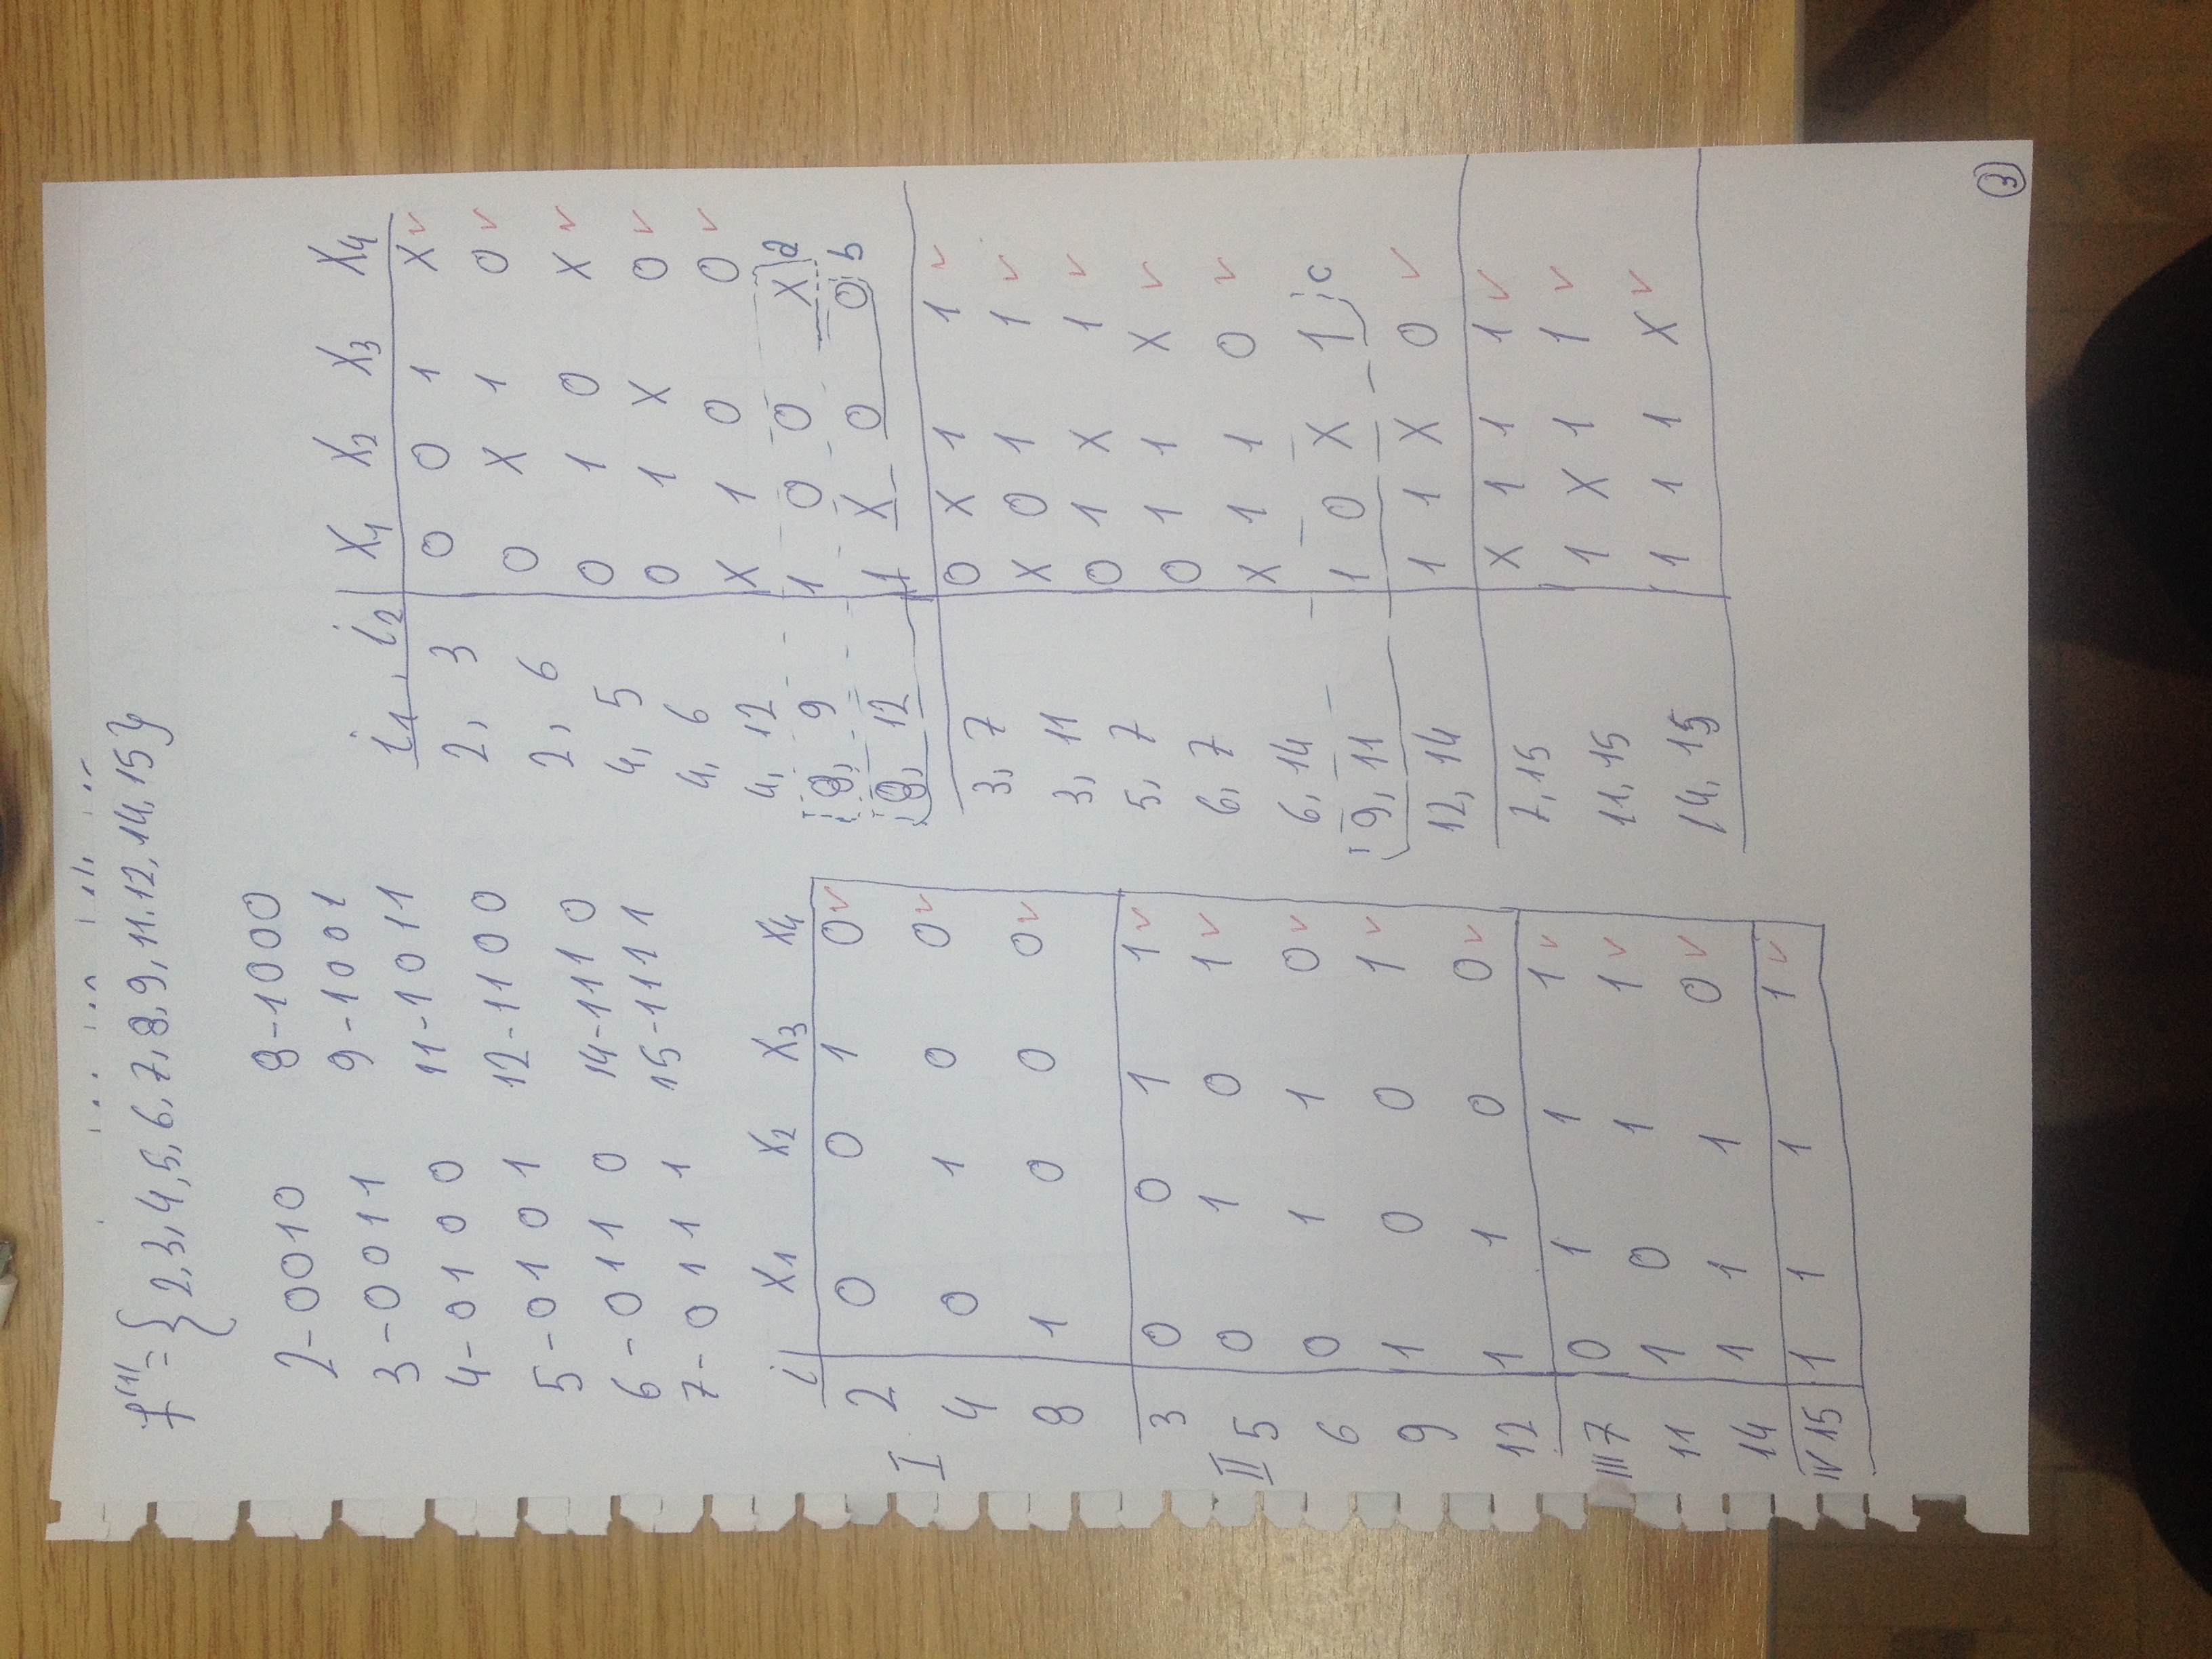 f⁽¹⁾= {2,3,4,5,6,7,8,9,11.12,14,15}
2-0010 8-1000
3-0011 9-1001
4-0100 11-1011
5-0101 12-1100
6-0110 14-1110
7-0111 15-1111
i X1 X2 X3 X4
I
2 0 0 1 0✓
4 0 1 0 0✓
8 1 0 0 0✓
II
3 0 0 1 1✓
5 0 1 0 1✓
6 0 1 1 0✓
9 1 0 0 1✓
12 1 1 0 0✓
III 7 0 1 1 1✓
11 1 0 1 1✓
14 1 1 1 0✓
IV 15 1 1 1 1✓
i1, i2 X1 X2 X3 X4
2, 3 0 0 1 X✓
2, 6 0 X 1 0✓
4, 5 0 1 0 X✓
4, 6 0 1 X 0✓
4, 12 X 1 0 0✓
8, 9 1 0 0 X a
8, 12 1 X 0 0 b
3, 7 0 X 1 1✓
3, 11 X 0 1 1✓
5, 7 0 1 X 1✓
6, 7 0 1 1 X✓
6, 14 X 1 1 0✓
9, 11 1 0 X 1 c
12, 14 1 1 X 0✓
7, 15 X 1 1 1✓
11, 15 1 X 1 1✓
14, 15 1 1 1 X✓
3